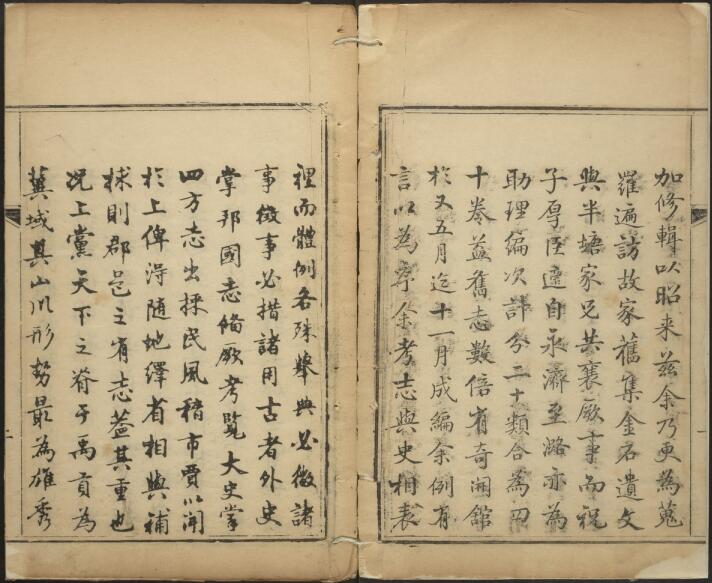 加修輯以昭来兹余乃更為蒐
羅遍訪故家舊集金石遺文
與半塘家兄共襄厥事而祝
子厚臣適自永濟至潞亦為
助理編次計分三十類合為四
十卷益舊志數倍有奇開舘
於又五月迄十一月成編余例有
言以為序余考志與史相表
裡而體例各殊舉典必徵諸
事徵事必措諸用古者外史
掌邦國志偹厥考覧大史掌
四方志出採民風稽市賈以聞
於上俾淂随地繹省相與補
捄則郡邑之有志葢其重也
况上黨天下之脊于禹貢為
冀域其山川形势最為雄秀
一